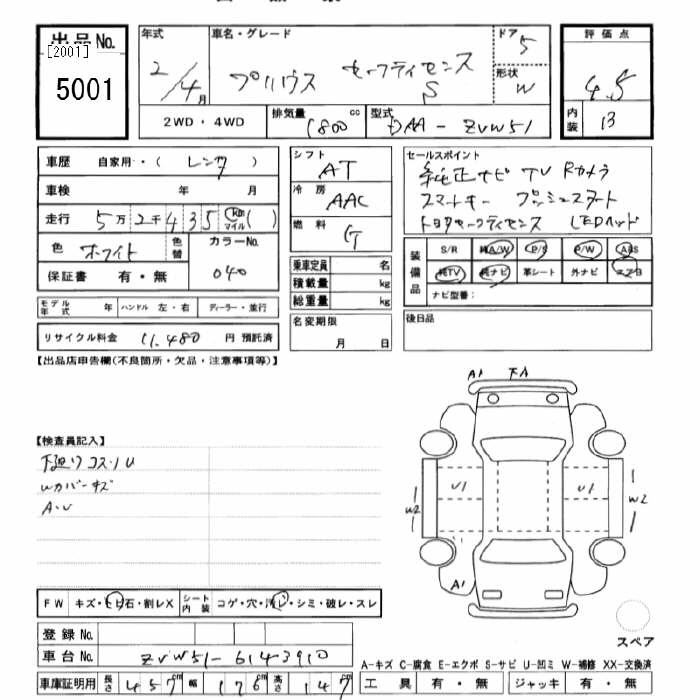 出品No.
[2001]
5001
年式
2/4月
車名・グレード
プリウス セーフティセンス
S
ドア
5
形状
W
評価点
4.5
内装
B
2WD・4WD
排気量
1800 cc
型式
DAA-ZVW51
車歴 自家用・・(レンタ)
車検 年 月
走行 5万2千435 km マイル ( )
色 ホワイト
色替
カラーNo.
040
保証書 有・無
モデル年式 年 ハンドル 左・右 ディーラー・並行
リサイクル料金 11,480 円 預託済
シフト
AT
冷房
AAC
燃料
G
乗車定員 名
積載量 kg
総重量 kg
名変期限
月 日
セールスポイント
純正ナビ TV Rカメラ
スマートキー プッシュスタート
トヨタセーフティセンス LEDヘッド
装備品
S/R 純A/W P/S P/W ABS
純TV 純ナビ 革シート 外ナビ エアB
ナビ型番:
後日品
【出品店申告欄(不良箇所・欠品・注意事項等)】
【検査員記入】
下廻りコスリU
Wカバーキズ
A・U
A1 下A
U1 U1
W2 W2
A1
スペア
FW キズ・ヒ石・割レX
シート内装 コゲ・穴・汚レ・シミ・破レ・スレ
登録No.
車台No. ZVW51-6143910
車庫証明用 長さ 457 幅 176 高さ 147
A-キズ C-腐食 E-エクボ S-サビ U-凹ミ W-補修 XX-交換済
工具 有・無 ジャッキ 有・無